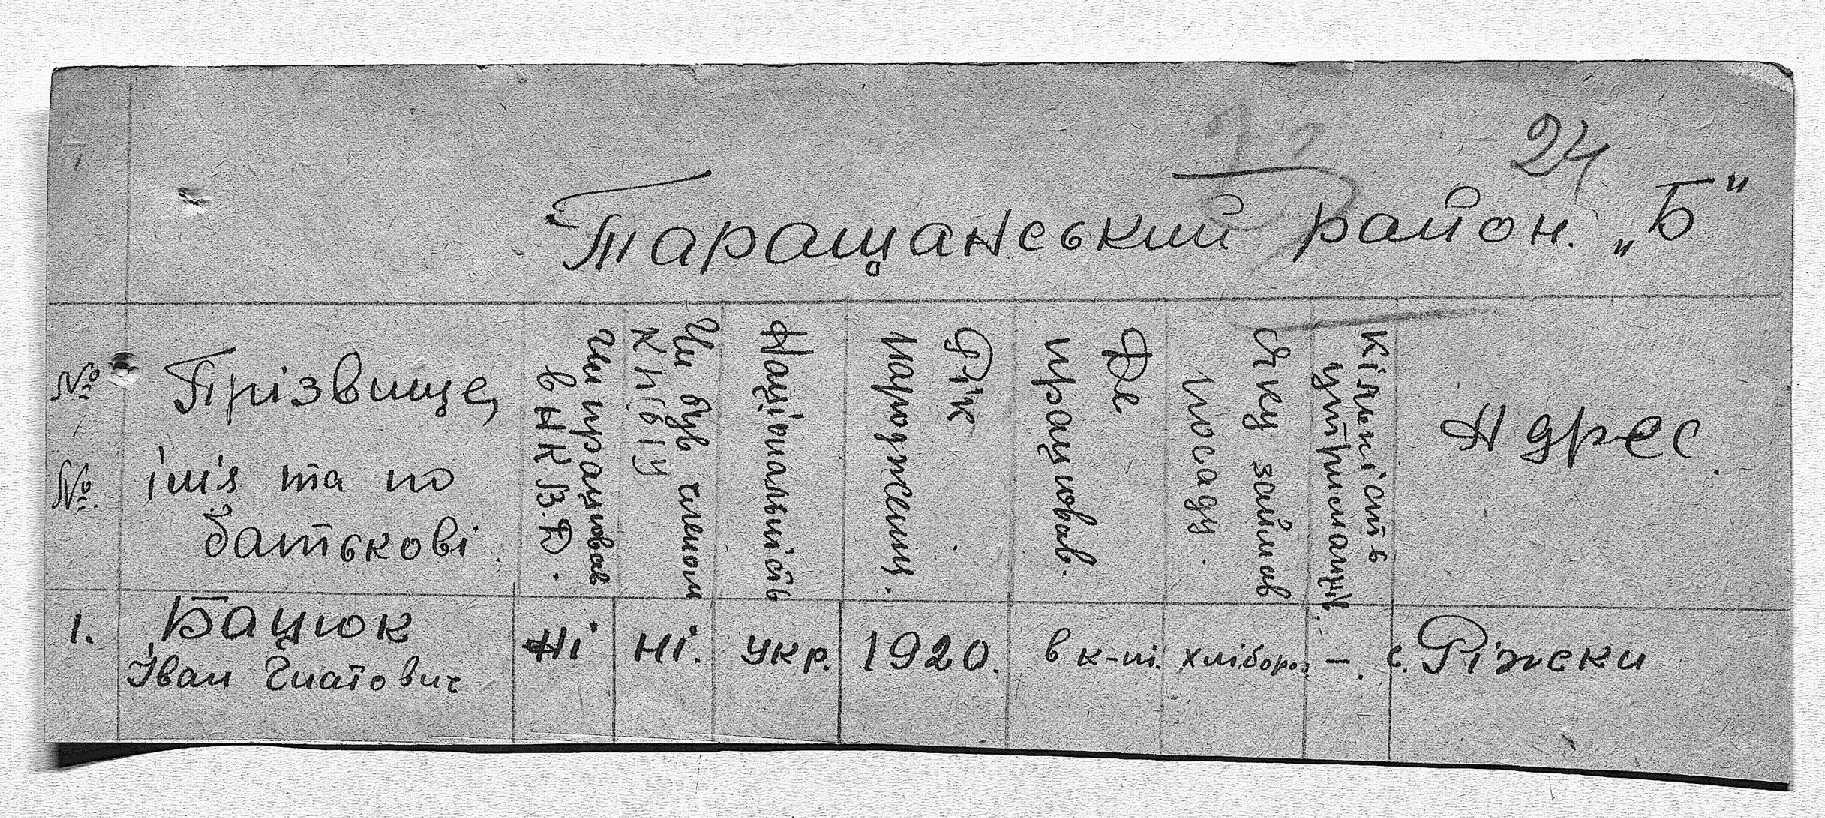 24
Таращанський район. „Б"
№ №
Прізвище,
ім'я та по
батькові
Чи працював
в НКВД.
Чи був членом
КП(б)У
Національність
Рік
народженн.
Де
працював.
Яку займав
посаду
Кількість
утриманців.
Адрес.
1.
Бацюк
Іван Гнатович
Ні
ні.
укр.
1920.
в к-пі.
хлібороб
–.
с. Ріжски